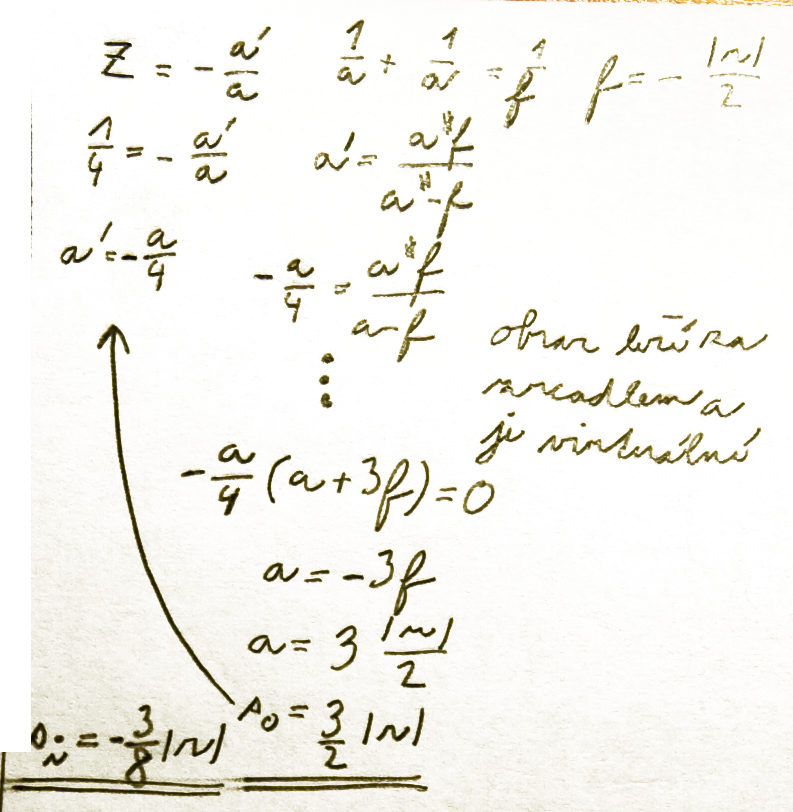 Z = - a'/a   1/a + 1/a' = 1/f   f = - |r|/2
1/4 = - a'/a   a' = a*f/a*-f
a' = - a/4   - a/4 = a*f/a-f
obraz leží za
zrcadlem a
je virtuální
⋮
- a/4 (a + 3f) = 0
a = -3f
a = 3 |r|/2
= - 3/8 |r|   = 3/2 |r|